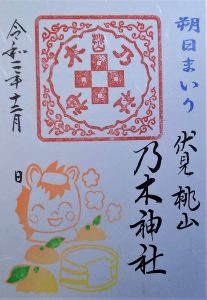 朔日まいり
伏見桃山
乃木神社
令和二年十二月
日